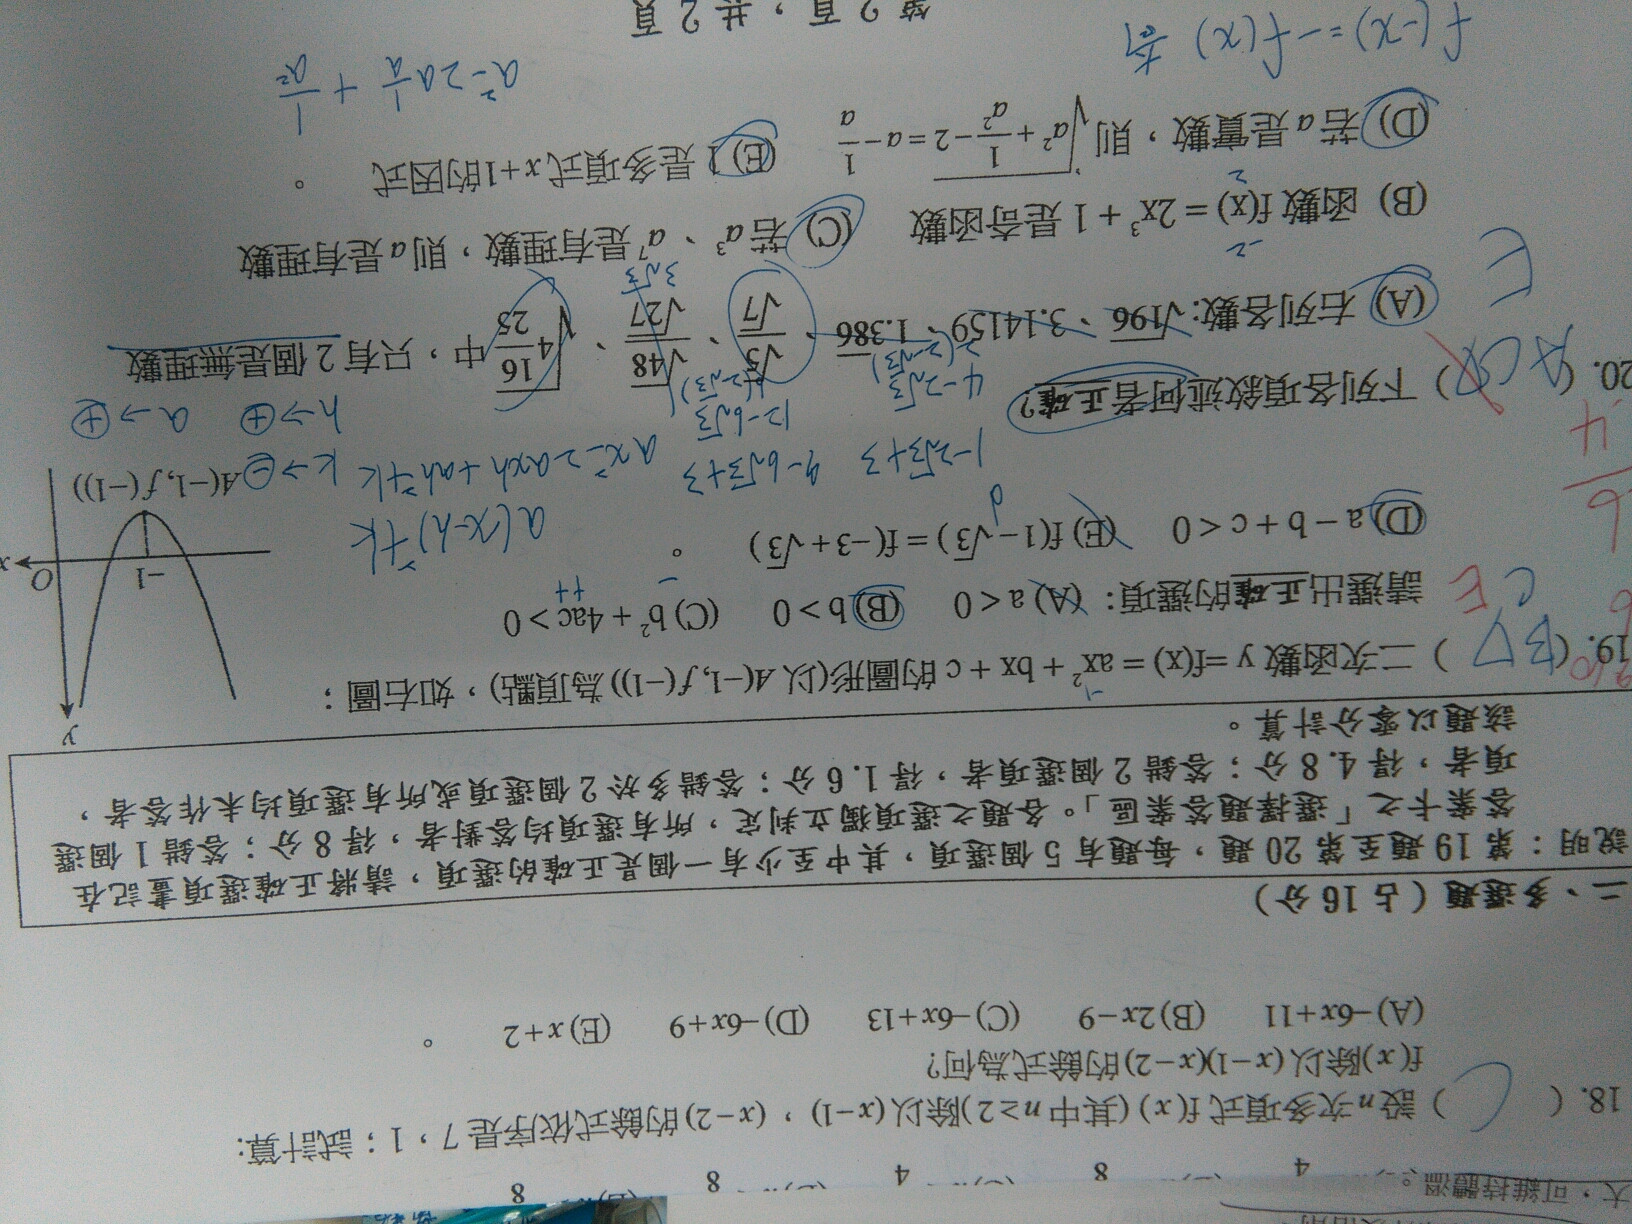 大，可維持體溫。
4 8 4 8 8
18. ( C ) 設n次多項式 f(x) (其中 n≥2)除以 (x−1)，(x−2) 的餘式依序是 7，1；試計算:
f(x)除以 (x−1)(x−2) 的餘式為何?
(A)−6x+11 (B)2x−9 (C)−6x+13 (D)−6x+9 (E)x+2 。
二、多選題（占16分）
說明：第 19 題至第 20 題，每題有 5 個選項，其中至少有一個是正確的選項，請將正確選項畫記在
答案卡之「選擇題答案區」。各題之選項獨立判定，所有選項均答對者，得 8 分；答錯 1 個選
項者，得 4.8 分；答錯 2 個選項者，得 1.6 分；答錯多於 2 個選項或所有選項均未作答者，
該題以零分計算。
19. ( BD ) 二次函數 y =f(x) = ax² + bx + c 的圖形(以 A(−1, f(−1)) 為頂點)，如右圖；
C E
請選出正確的選項： (A) a < 0 (B) b > 0 (C) b² + 4ac > 0
++
(D) a − b + c < 0 (E) f(1−√3) = f(−3+√3) 。
y
−1
O
x
A(−1, f(−1))
a(x−h)²+k
1−2√3+3 9−6√3+3 ax²−2axh+ah²+k k→⊖
4−2√3 12−6√3 h→⊕ a→⊕
2(2−√3) 6(2−√3)
20. ( ACD ) 下列各項敘述何者正確?
E
(A) 右列各數: √196、3.14159、1.386、√5/√7、√48/√27、√(4 16/25) 中，只有 2 個是無理數
3√3
(B) 函數 f(x) = 2x³ + 1 是奇函數 (C) 若 a³、a⁷ 是有理數，則 a 是有理數
−2
2
(D) 若 a 是實數，則 √(a² + 1/a² − 2) = a − 1/a (E) 1 是多項式 x+1 的因式 。
f(−x)=−f(x) 奇
a²−2a 1/a + 1/a²
第 2 頁，共 2 頁